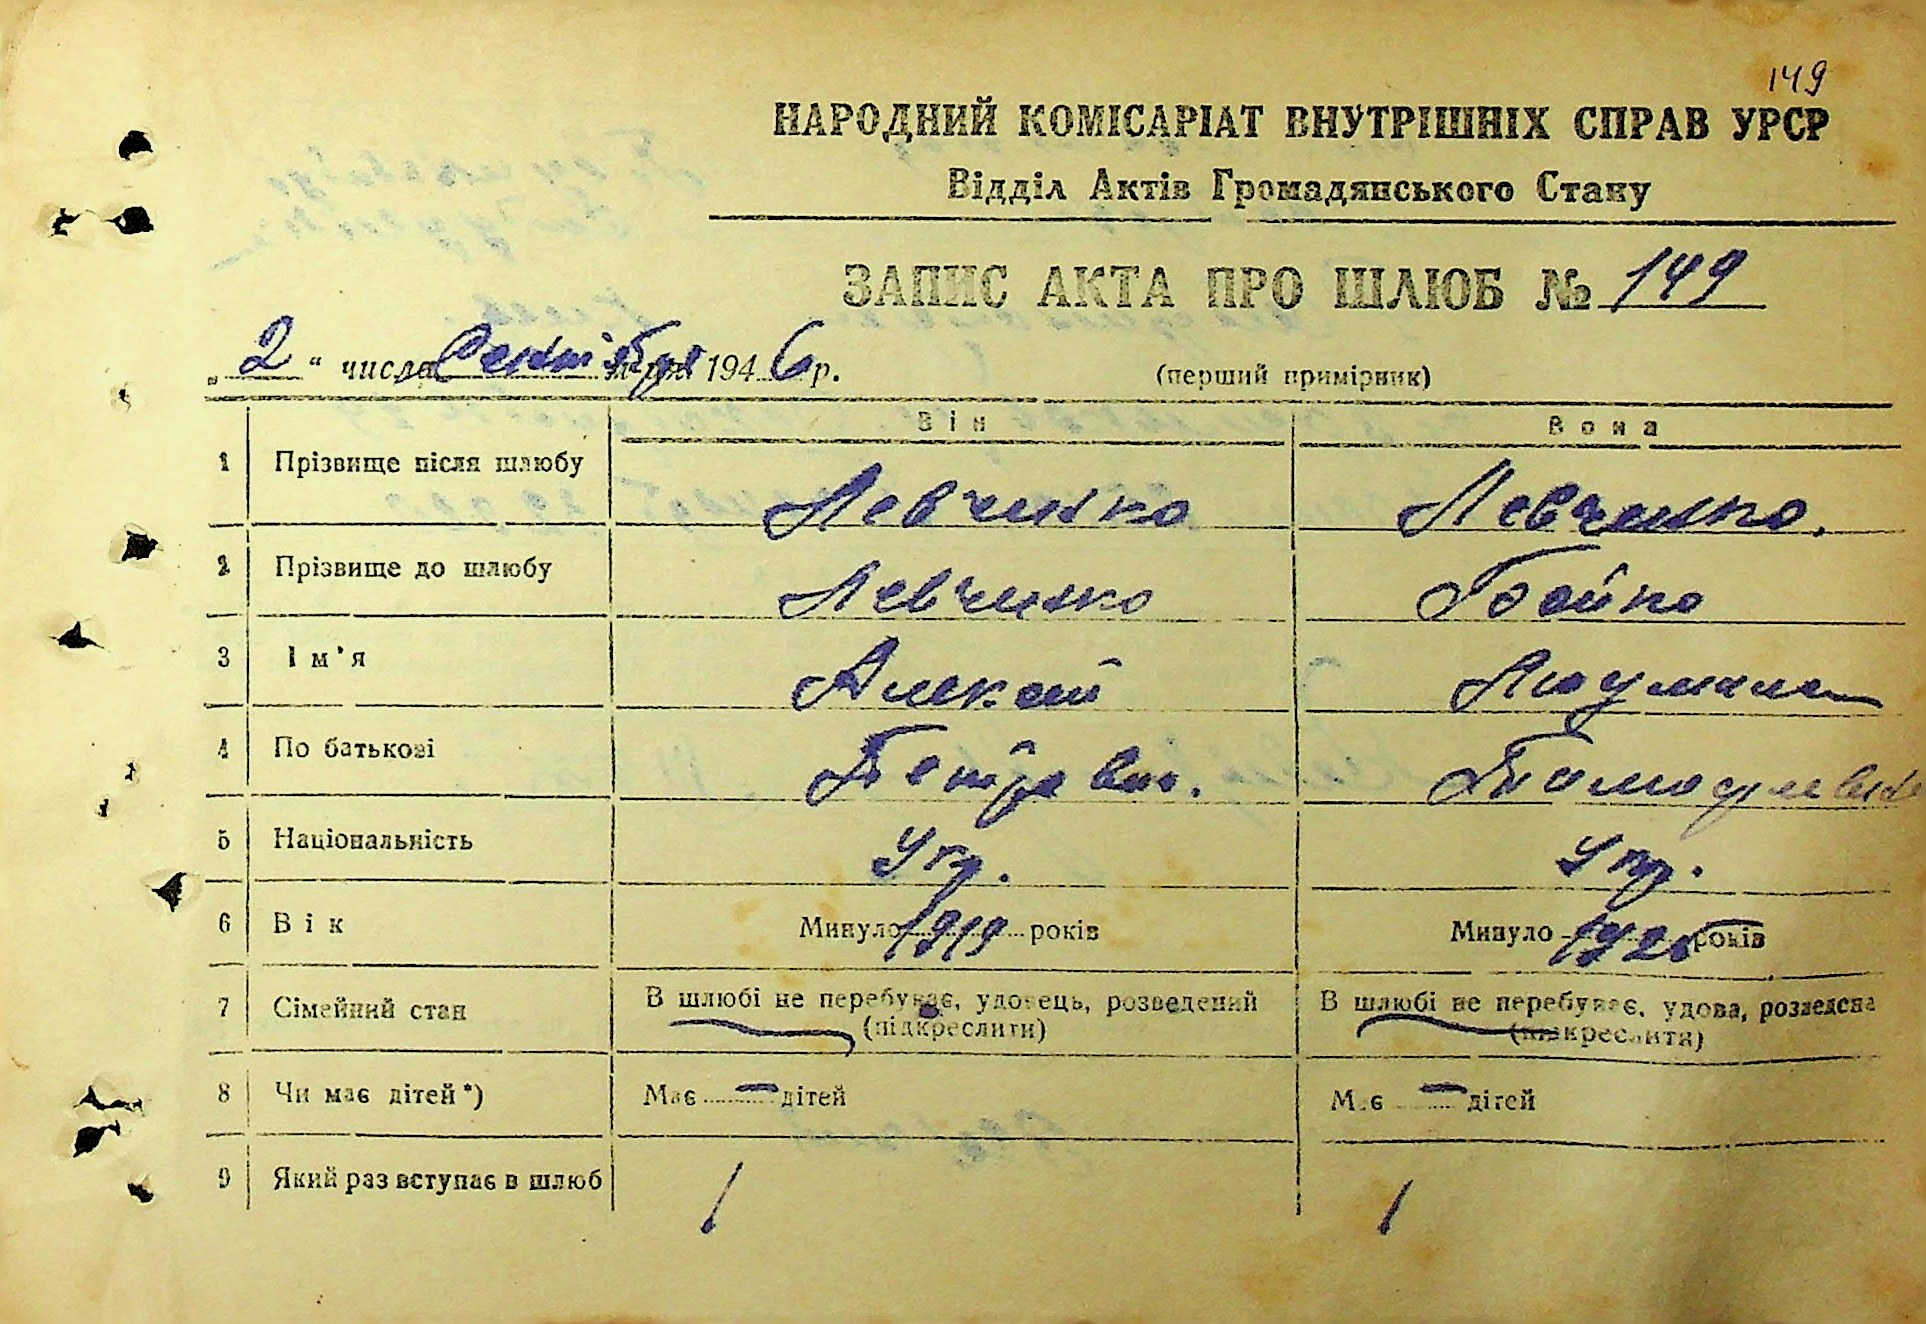 149
НАРОДНИЙ КОМІСАРІАТ ВНУТРІШНІХ СПРАВ УРСР
Відділ Актів Громадянського Стану
ЗАПИС АКТА ПРО ШЛЮБ № 149
„ 2 “ числа Сентября 1946 р. (перший примірник)
Він Вона
1 Прізвище після шлюбу Левченко Левченко.
2 Прізвище до шлюбу Левченко Бойко
3 Ім'я Алексей Людмила
4 По батькові Петрович.
5 Національність Укр. Укр.
6 Вік Минуло 1919 років Минуло років
7 Сімейний стан В шлюбі не перебуває, удовець, розведений В шлюбі не перебуває, удова, розведена
(підкреслити) (підкреслити)
8 Чи має дітей*) Має — дітей Має — дітей
9 Який раз вступає в шлюб 1 1